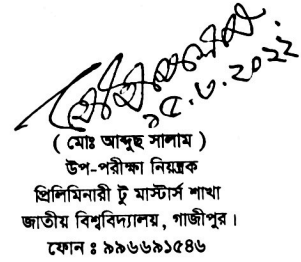 ১৫.৩.২০২২
( মোঃ আব্দুছ সালাম )
উপ-পরীক্ষা নিয়ন্ত্রক
প্রিলিমিনারী টু মাস্টার্স শাখা
জাতীয় বিশ্ববিদ্যালয়, গাজীপুর।
ফোন ঃ ৯৯৬৬৯১৫৪৬